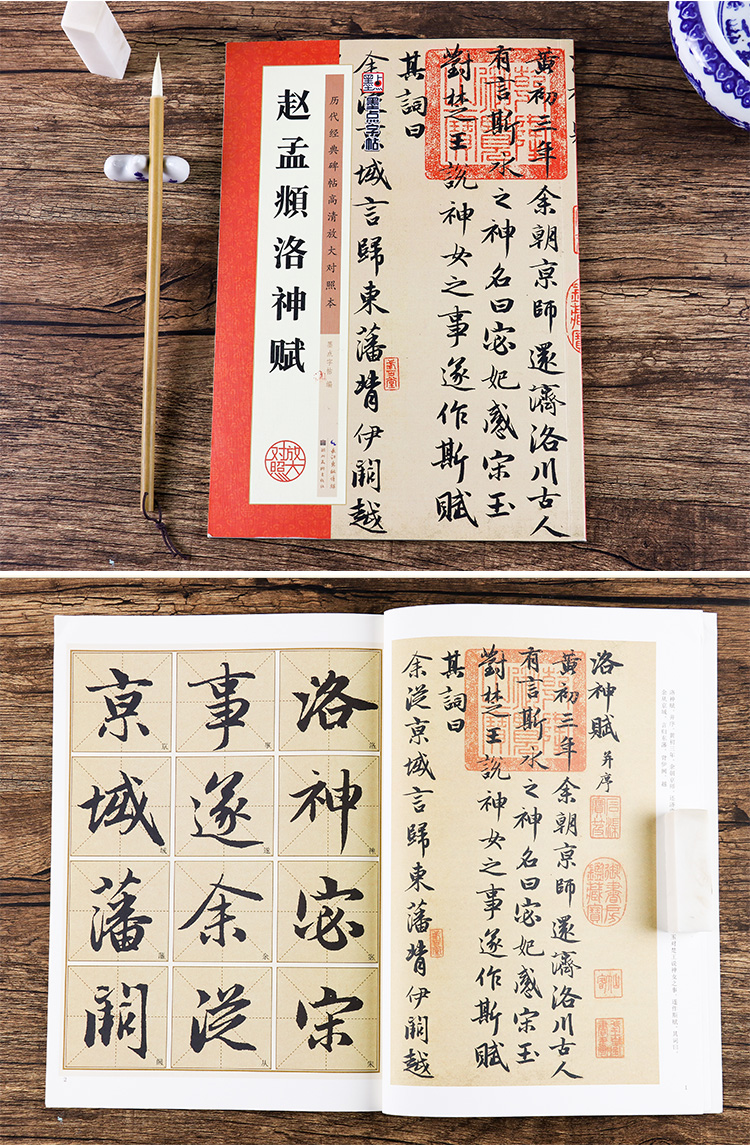 赵孟頫洛神赋
历代经典碑帖高清放大对照本
墨点字帖 编
放大对照
墨点字帖
黄初三年余朝京師還濟洛川古人
有言斯水之神名曰宓妃感宋玉
對楚王說神女之事遂作斯賦
其詞曰
余從京域言歸東藩背伊闕越
洛神
事遂余從
京域藩闕
洛神宓宋
2
洛神賦 并序
黄初三年余朝京師還濟洛川古人
有言斯水之神名曰宓妃感宋玉
對楚王說神女之事遂作斯賦
其詞曰
余從京域言歸東藩背伊闕越
御書房鑑藏寶
1